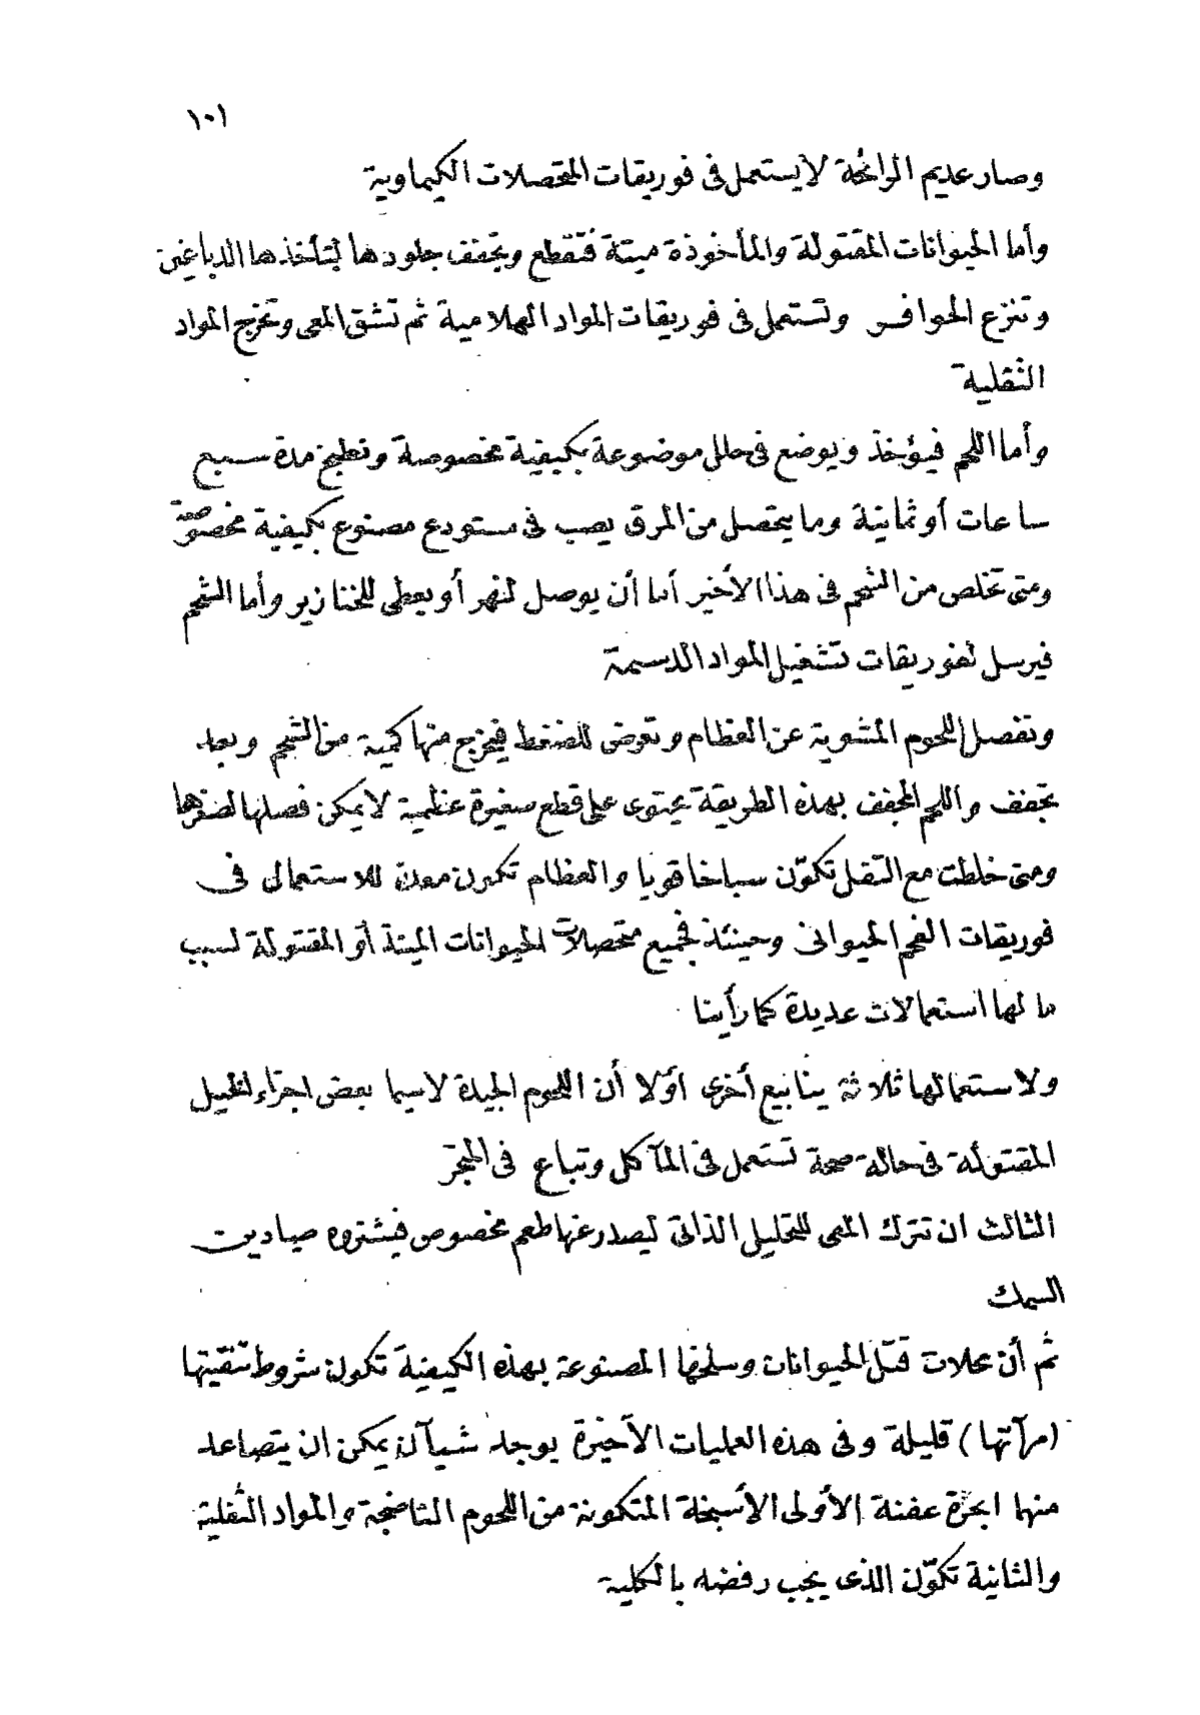 ١٠١
وصار عديم الرائحة لا يستعمل فى فوريقات المتحصلات الكيماوية
وأما الحيوانات المقتولة والمأخوذة ميتة فتقطع وتجفف جلودها لتأخذها الدباغين
وتنزع الحوافر وتستعمل فى فوريقات المواد الهلامية ثم تشق المعى وتخرج المواد
الثقلية
وأما اللحم فيؤخذ ويوضع فى حلل موضوعة بكيفية مخصوصة وتطبخ مدة سبع
ساعات أو ثمانية وما يتحصل من المرق يصب فى مستودع مصنوع بكيفية مخصوصة
ومتى تخلص من الشحم فى هذا الأخير أما أن يوصل لنهر أو يعطى للخنازير وأما الشحم
فيرسل لفوريقات تشغيل المواد الدسمة
وتفصل اللحوم المشوية عن العظام وتعرض للضغط فيخرج منها كمية من الشحم وبعد
تجفف واللحم المجفف بهذه الطريقة يحتوى على قطع صغيرة عظمية لا يمكن فصلها لصغرها
ومتى خلطت مع الثقل تكوّن سباخا قويا والعظام تكون معدة للاستعمال فى
فوريقات الفحم الحيوانى وحينئذ فجميع متحصلات الحيوانات الميتة أو المقتولة لسبب
ما لها استعمالات عديدة كما رأينا
ولاستعمالها ثلاثة ينابيع أخرى اوّلا أن اللحوم الجيدة لا سيما بعض اجزاء الخيل
المقتولة فى حالة صحة تستعمل فى المآكل وتباع فى المجزر
الثالث ان تترك المعى للتحليل الذاتى ليصدر عنها طعم مخصوص فيشتروه صيادين
السمك
ثم أن محلات قتل الحيوانات وسلخها المصنوعة بهذه الكيفية تكون شروط تنقيتها
(مرآتها) قليلة وفى هذه العمليات الأخيرة يوجد شيآن يمكن ان يتصاعد
منها ابخرة عفنة الأولى الأسبخة المتكونة من اللحوم الناضجة والمواد الثقلية
والثانية تكوّن الذى يجب رفضه بالكلية